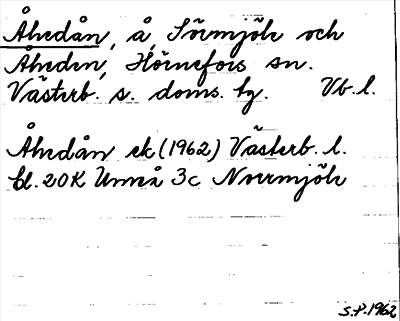 Åhedån, å, Sörmjöle och
Åheden, Hörnefors sn.
Västerb. s. doms. tg. Vb. l.
Åhedån ek (1962) Västerb. l.
bl. 20K Umeå 3c Norrmjöle
S.P. 1962